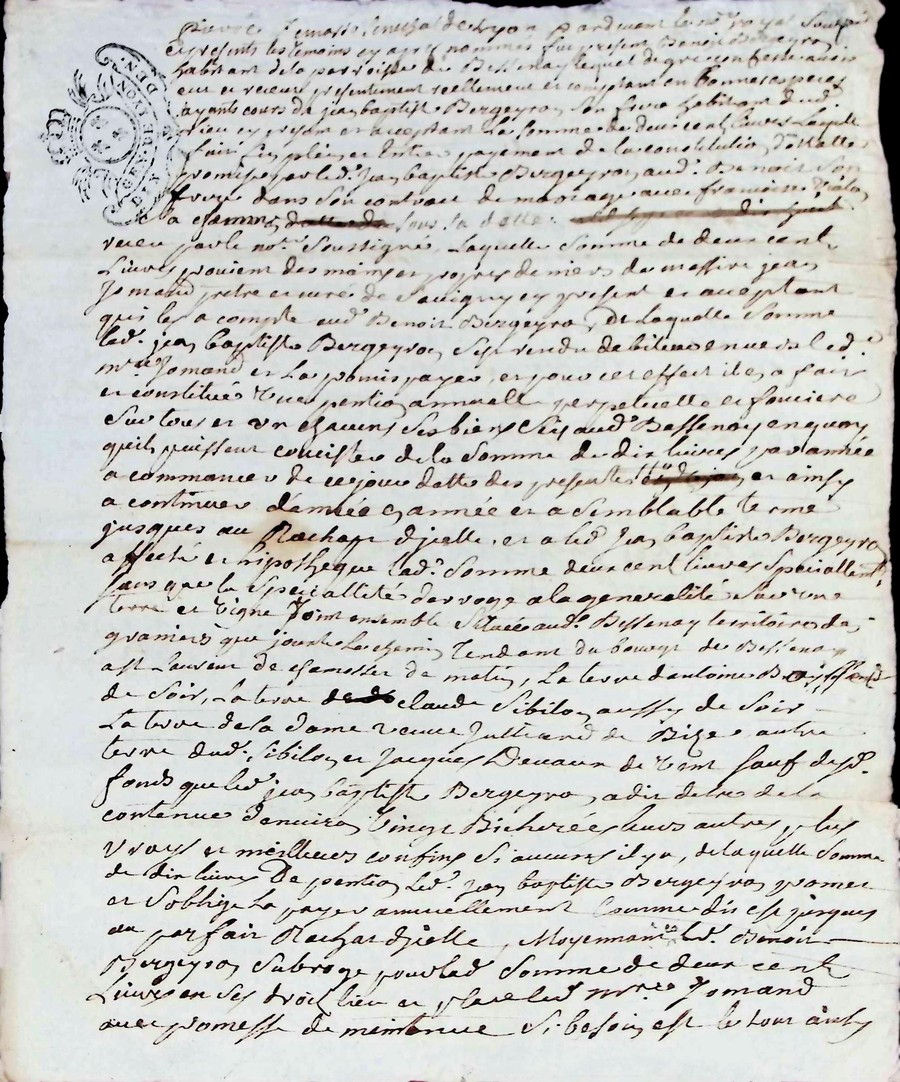 Senechal de Lyon Pardevant le no.re royal soussigné
et presents les temoins cy apres nommés fut present Benoit Bergeyron
habitant de la parroisse de Bessenay lequel de gré confesse avoir
eu et receu presentement reellement et comptant en bonnes especes
ayants cours de jean baptiste Bergeyron son frere habitant dud.
lieu cy present et acceptant la somme de deux cent livres laquelle
fait l'emplein et entier payement de la constitution dottalle
promise par led. jean baptiste Bergeyron aud. Benoit son
frere dans son contract de mariage avec francoise
sous sa datte
receu par le not.re soussigné, laquelle somme de deux cent
livres provient des mains et propres deniers de messire jean
Jomand pretre et curé de Savigny cy present et acceptant
qui les a compté aud. Benoit Bergeyron, de laquelle somme
led. jean baptiste Bergeyron s'est rendu debiteur envers led.
m.re Jomand et la promis payer, et pour cet effect il en a fait
et constitué une pention annuelle perpetuelle et fonciere
sur tous et un chacuns ses biens sis aud. Bessenay en quoy
qu'ils puissent consister de la somme de dix livres par année
a commancer de ce jour datte des presentes et ainsy
a continuer d'année en année et a semblable terme
jusques au Rachapt d'jcelle, et a led. jean baptiste Bergeyron
affecté et hipothequé lad. somme deux cent livres speciallem.t
sans que la speciallité deroge a la generalité sur une
terre et vigne joint ensemble située aud. Bessenay territoire des
graniers que jouxte le chemin tendant du bourg de Bessenay
de matin, la terre d'antoine
de soir, la terre claude Sibilon aussy de soir
la terre de la dame veuve de Bize, autre
terre dud. Sibilon et jacques Devaux de vent sauf desd.
fonds que led. jean baptiste Bergeyron a dit etre de la
contenue d'environ vingt Bicherées leurs autres plus
vrays et meilleurs confins si aucuns il y a, de laquelle somme
de dix livres de pention led. jean baptiste Bergeyron promet
et s'obblige la payer annuellement comme dit est jusques
au parfait Rachat d'jcelle, Moyennant ce led. Benoit
Bergeyron subroge pour lad. somme de deux cent
livres en ses droits lieu et place led. m.re Jomand
avec promesse de maintenue si besoin est le tout ainsy